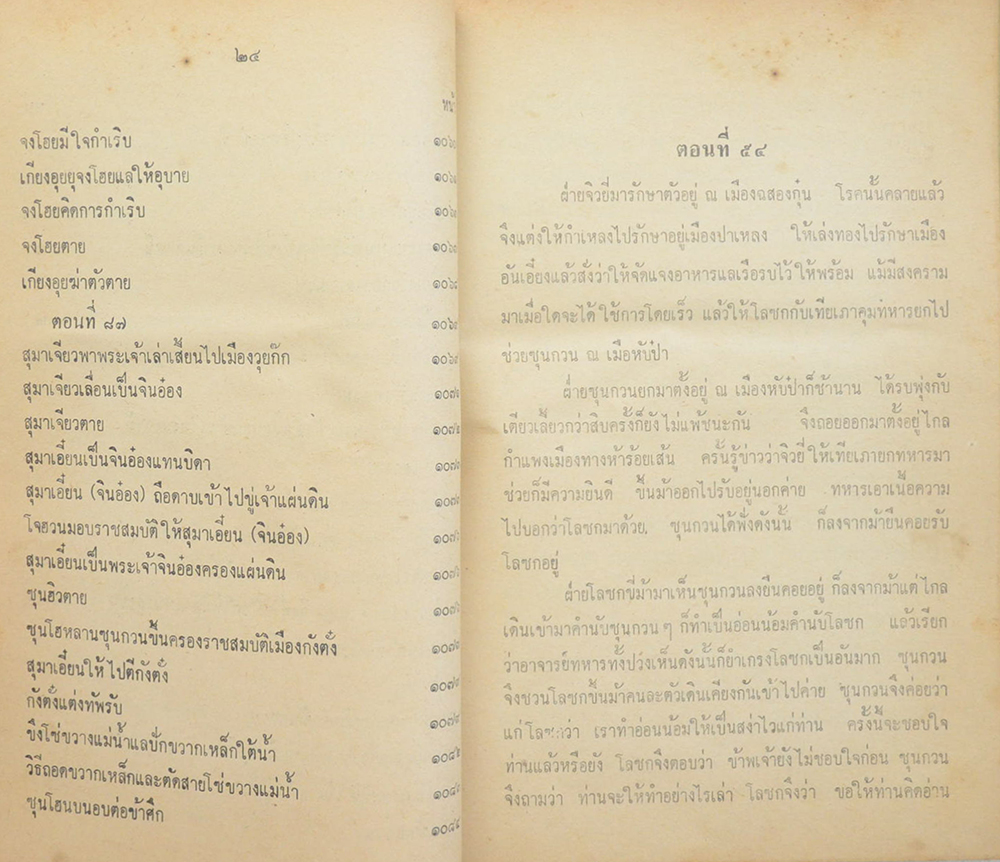 ๒๔
หน้า
จงโฮยมีใจกำเริบ
เกียงอุยยุจงโฮยแลให้อุบาย
จงโฮยคิดการกำเริบ
จงโฮยตาย
เกียงอุยฆ่าตัวตาย
ตอนที่ ๘๗
สุมาเจียวพาพระเจ้าเล่าเสี้ยนไปเมืองวุยก๊ก
สุมาเจียวเลื่อนเป็นจินอ๋อง
สุมาเจียวตาย
สุมาเอี๋ยนเป็นจินอ๋องแทนบิดา
สุมาเอี๋ยน (จินอ๋อง) ถือดาบเข้าไปขู่เจ้าแผ่นดิน
โจฮวนมอบราชสมบัติให้สุมาเอี๋ยน (จินอ๋อง)
สุมาเอี๋ยนเป็นพระเจ้าจินอ๋องครองแผ่นดิน
ซุนฮิวตาย
ซุนโฮหลานซุนกวนขึ้นครองราชสมบัติเมืองกังตั๋ง
สุมาเอี๋ยนให้ไปตีกังตั๋ง
กังตั๋งแต่งทัพรับ
ขึงโซ่ขวางแม่น้ำแลปักขวากเหล็กใต้น้ำ
วิธีถอดขวากเหล็กและตัดสายโซ่ขวางแม่น้ำ
ซุนโฮนบนอบต่อข้าศึก
ตอนที่ ๕๔
ฝ่ายจิวยี่มารักษาตัวอยู่ ณ เมืองฉสองกุ๋น โรคนั้นคลายแล้ว
จึงแต่งให้กำเหลงไปรักษาอยู่เมืองปาเหลง ให้เล่งทองไปรักษาเมือง
ฮันเอี๋ยงแล้วสั่งว่าให้จัดแจงอาหารแลเรือรบไว้ให้พร้อม แม้มีสงคราม
มาเมื่อใดจะได้ใช้การโดยเร็ว แล้วให้โลซกกับเทียเภาคุมทหารยกไป
ช่วยซุนกวน ณ เมือหับป๋า
ฝ่ายซุนกวนยกมาตั้งอยู่ ณ เมืองหับป๋าก็ช้านาน ได้รบพุ่งกับ
เตียวเลี้ยวกว่าสิบครั้งก็ยังไม่แพ้ชนะกัน จึงถอยออกมาตั้งอยู่ไกล
กำแพงเมืองทางห้าร้อยเส้น ครั้นรู้ข่าวว่าจิวยี่ให้เทียเภายกทหารมา
ช่วยก็มีความยินดี ขึ้นม้าออกไปรับอยู่นอกค่าย ทหารเอาเนื้อความ
ไปบอกว่าโลซกมาด้วย, ซุนกวนได้ฟังดังนั้น ก็ลงจากม้ายืนคอยรับ
โลซกอยู่
ฝ่ายโลซกขี่ม้ามาเห็นซุนกวนลงยืนคอยอยู่ ก็ลงจากม้าแต่ไกล
เดินเข้ามาคำนับซุนกวนๆ ก็ทำเป็นอ่อนน้อมคำนับโลซก แล้วเรียก
ว่าอาจารย์ทหารทั้งปวงเห็นดังนั้นก็ยำเกรงโลซกเป็นอันมาก ซุนกวน
จึงชวนโลซกขึ้นม้าคนละตัวเดินเคียงกันเข้าไปค่าย ซุนกวนจึงค่อยว่า
แก่โลซกว่า เราทำอ่อนน้อมให้เป็นสง่าไวแก่ท่าน ครั้งนี้จะชอบใจ
ท่านแล้วหรือยัง โลซกจึงตอบว่า ข้าพเจ้ายังไม่ชอบใจก่อน ซุนกวน
จึงถามว่า ท่านจะให้ทำอย่างไรเล่า โลซกจึงว่า ขอให้ท่านคิดอ่าน